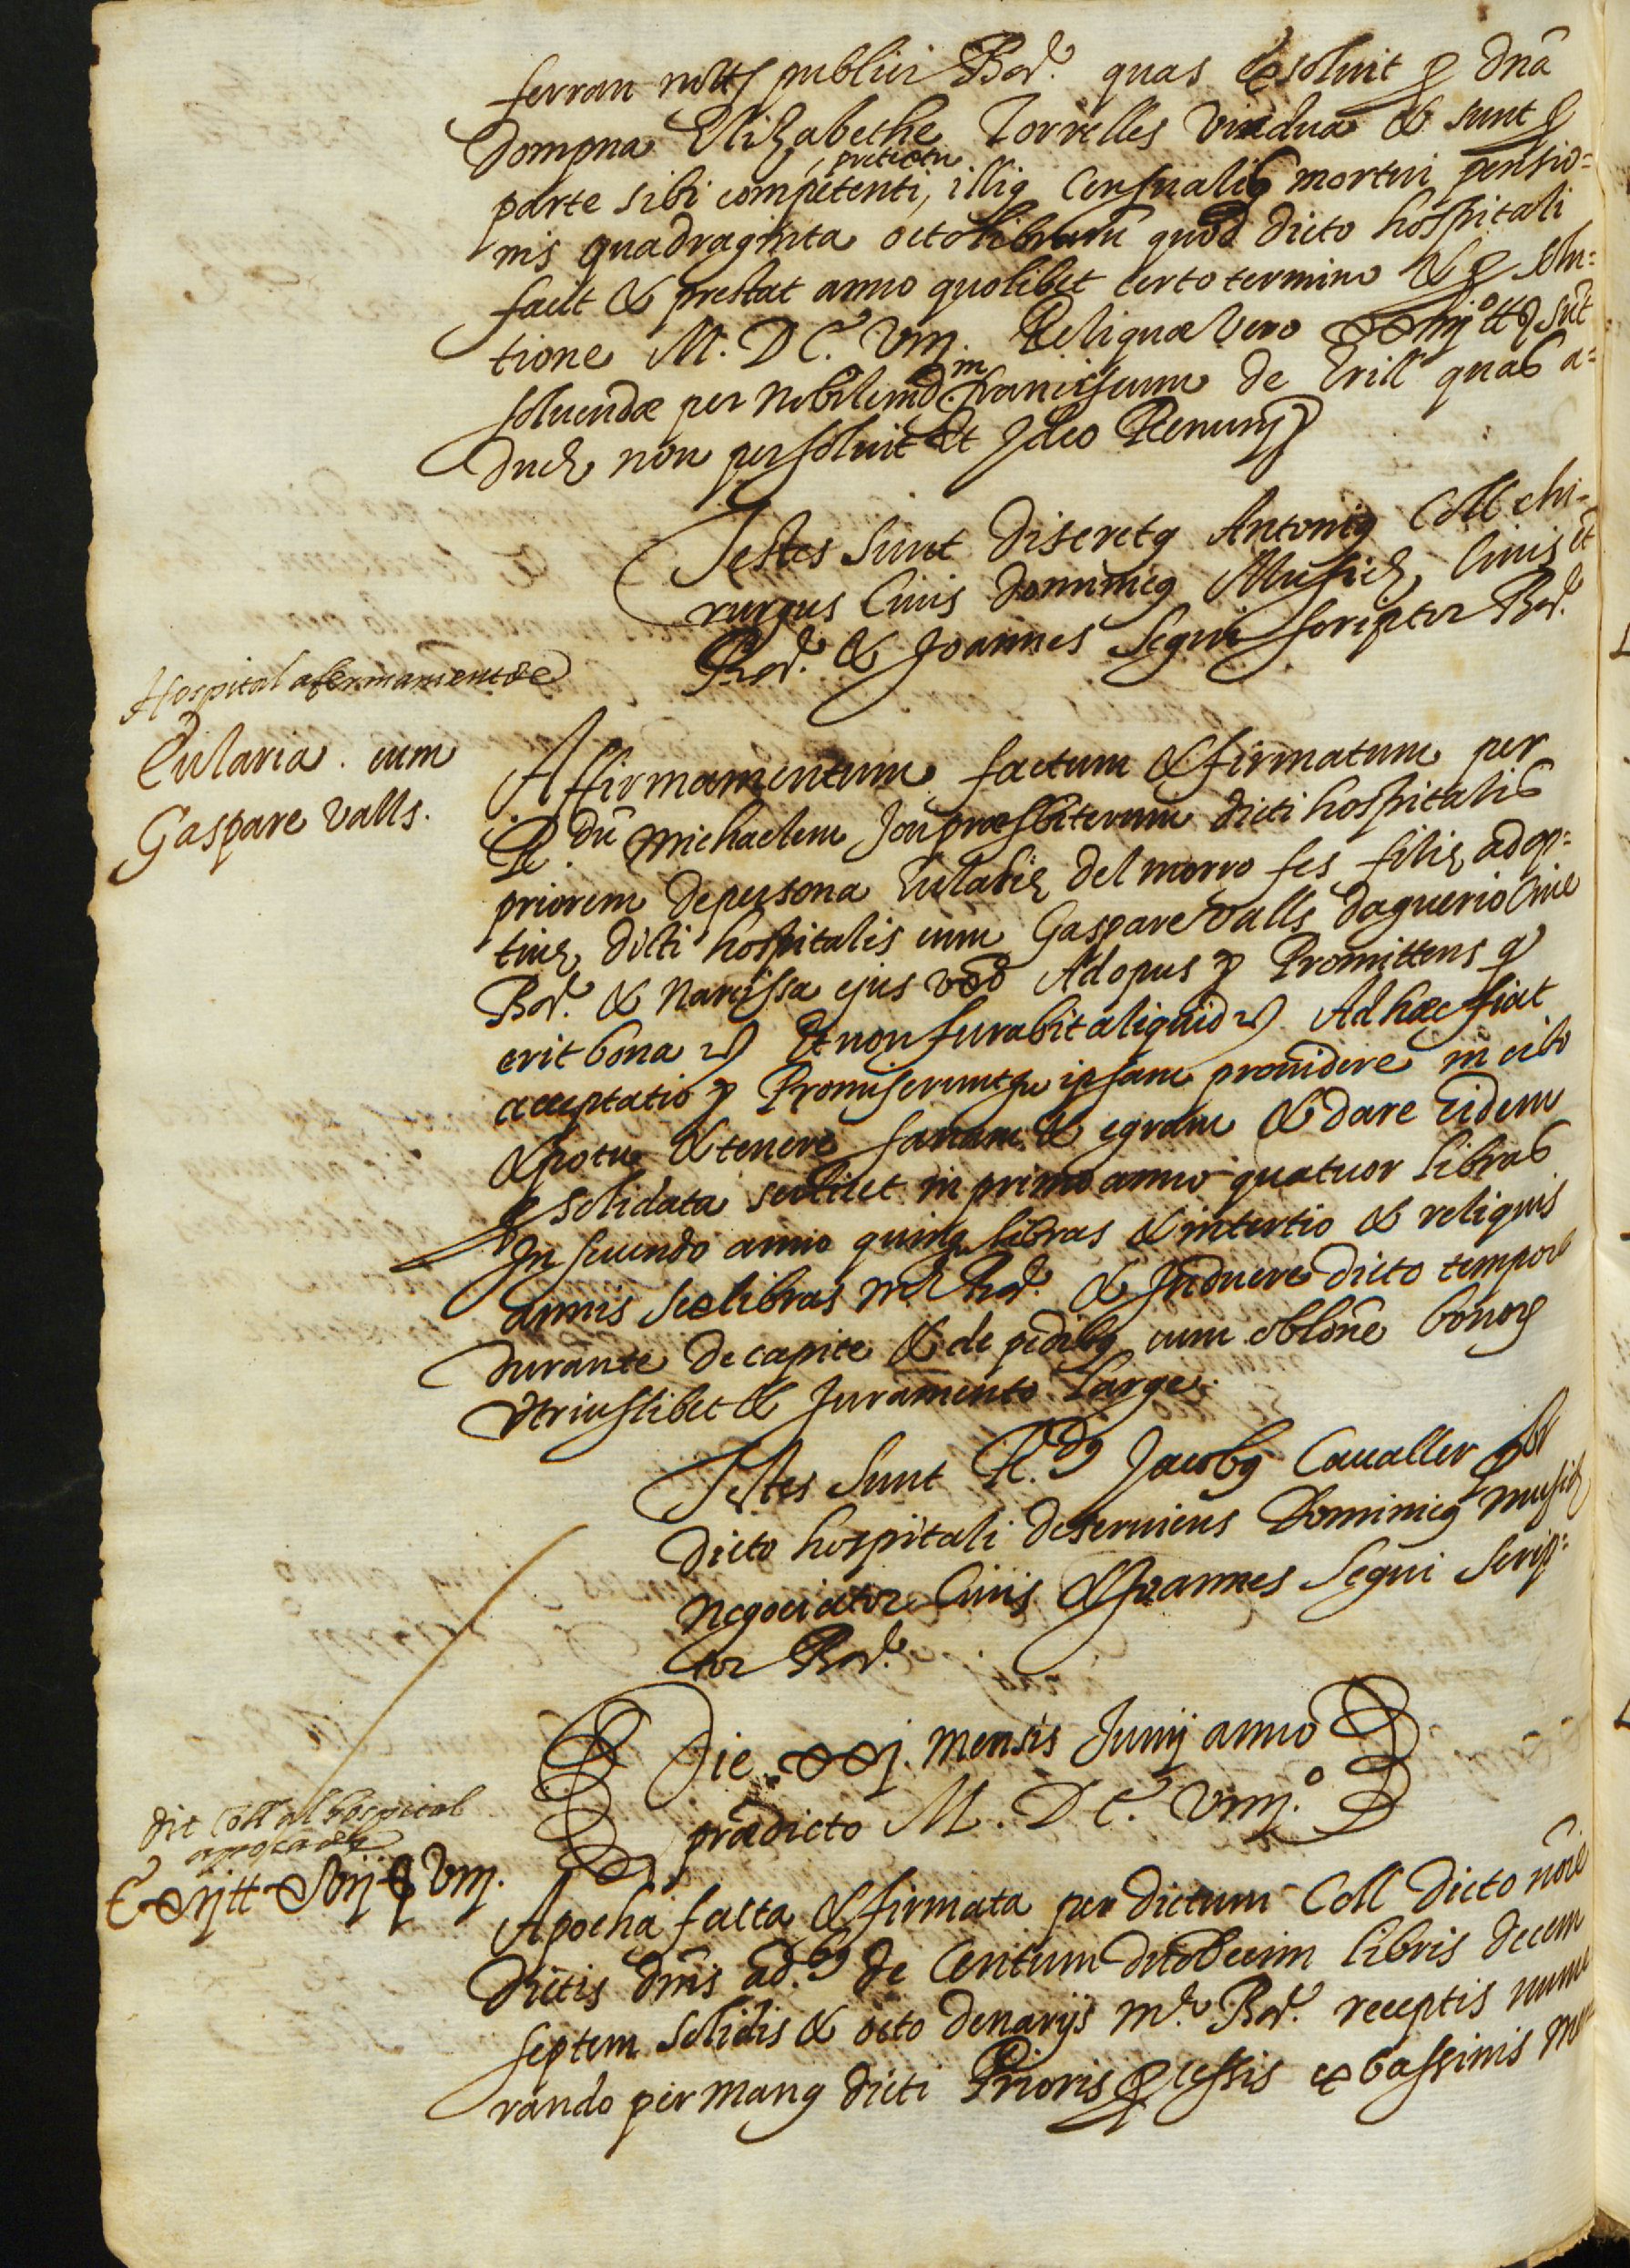 ferran nottⁱ publici Barᵉ. quas exsoluit ꝑ dnã
dompna Elizabethe Torrelles viudua & sunt ꝑ
parte sibi competenti, pretextu illiꝯ Censualis mortui pensio=
nis quadraginta octo librarũ quod dicto hospitali
facit & prestat anno quolibet certo termino & ꝑ solu=
tione M. D C. viiij. Reliquæ vero
soluendæ per Nobilem d.ᵐ franciscum de Erill quas a=
duch non persoluit Et Ideo Renunᵗ
Testes sunt discretꝯ Antoniꝯ Coll chi=
rurgus Ciuis dominicꝯ Musich, Ciuis
Barᵉ. & Joannes Segui scriptor Barᵉ.
Hospital afermament de
Eularia. cum
Gaspare Valls.
Affirmamentum factum & firmatum per
R.ᵈᵘ Michaelem Jou præsbiterum dicti hospitalis
priorem de persona Eulalię del morro ses filię adop=
tiuę dicti hospitalis cum Gaspare Valls daguerio Ciue
Barᵉ. & Narcissa ejus vxᵒ Ad opus ꝛ Promittens ꝙ
erit bona ꝛ Et non furabit aliquid ꝛ Ad hæc fiat
acceptatio ꝛ Promiseruntqꝫ ipsam prouidere in cibo
& potu & tenere sanam & egram & dare Eidem
ꝑ solidata scilicet in primo anno quatuor libras
In secundo anno quinqꝫ libras & in tertio & reliquis
annis sex libras mᵉ Barᵉ. & Induere dicto tempore
durante de capite & de pedibꝯ cum obloñe bonoꝝ
vtriuslibet & Juramento Large.
Testes sunt R.ᵈꝯ Jacobꝯ Caualler pbr
dicto hospitali deseruiens Dominicꝯ Musich
Negociator Ciuis & Joannes Segui scrip=
tor Barᵉ.
Die xxj. mensis Junij anno
prædicto M. D C. viiij.º
dit Coll al hospital
apocha de
C xij ₶ xvij ꝯ viij.
Apocha facta & firmata per dictum Coll dicto noiẽ
dictis dnis ad.ᵇꝯ de Centum duodecim libris decem
septem solidis & octo denarijs mᵉ Barᵉ. receptis nume
rando per manꝯ dicti Prioris ꝑcessis ex bassinis